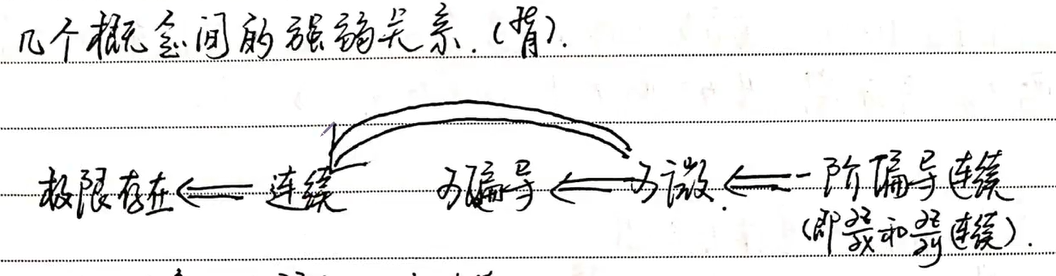 几个概念间的强弱关系.(背).
极限存在⇐连续 可偏导⇐可微.⇐一阶偏导连续
(即∂z/∂x和∂z/∂y连续).